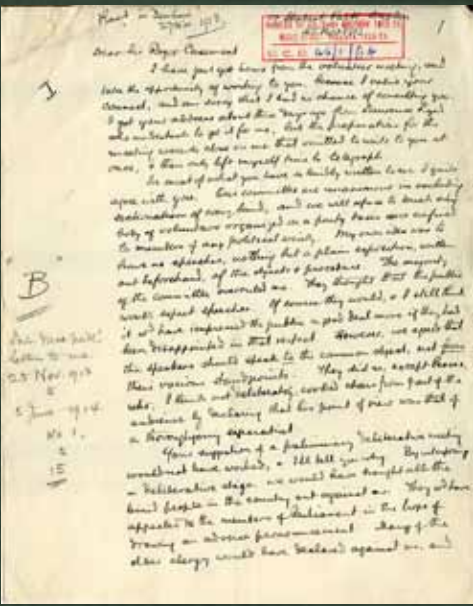 Dear Sir Roger Casement
I have just got home from the volunteer meeting, and
take the opportunity of writing to you, because I value your
counsel, and am sorry that I had no chance of consulting you.
I got your address about three days ago from
who undertook to get it for me, but the preparations for the
meeting were so close on me that I omitted to write to you at
once, & then only left myself time to telegraph
In most of what you have so kindly written to me I quite
agree with you. Our committee are unanimous in excluding
sectionalism of every kind, and we will refuse to touch any
body of volunteers organised on a party basis or confined
to members of any political society. My own idea was to
have no speeches, nothing but a plain exposition, written
out beforehand, of the objects & procedure. The majority
of the committee overruled me. They thought that the public
would expect speeches. Of course they would, & I still think
it would have impressed the public a good deal more if they had
been disappointed in that respect. However, we agreed that
the speakers should speak to the common object, not from
their various standpoints. They did so, except
who, I think not deliberately, evoked cheers from part of the
audience by declaring that his point of view was that of
a thoroughgoing separatist.
Your suggestion of a preliminary deliberative meeting
would not have worked, & I'll tell you why. By interposing
a deliberative stage, we would have brought all the
timid people in the country out against us. They would have
appealed to the members of Parliament in the hope of
drawing an adverse pronouncement. Many of the
older clergy would have declared against us, and
1
B
letter to me
25 Nov. 1913
No 1.
15